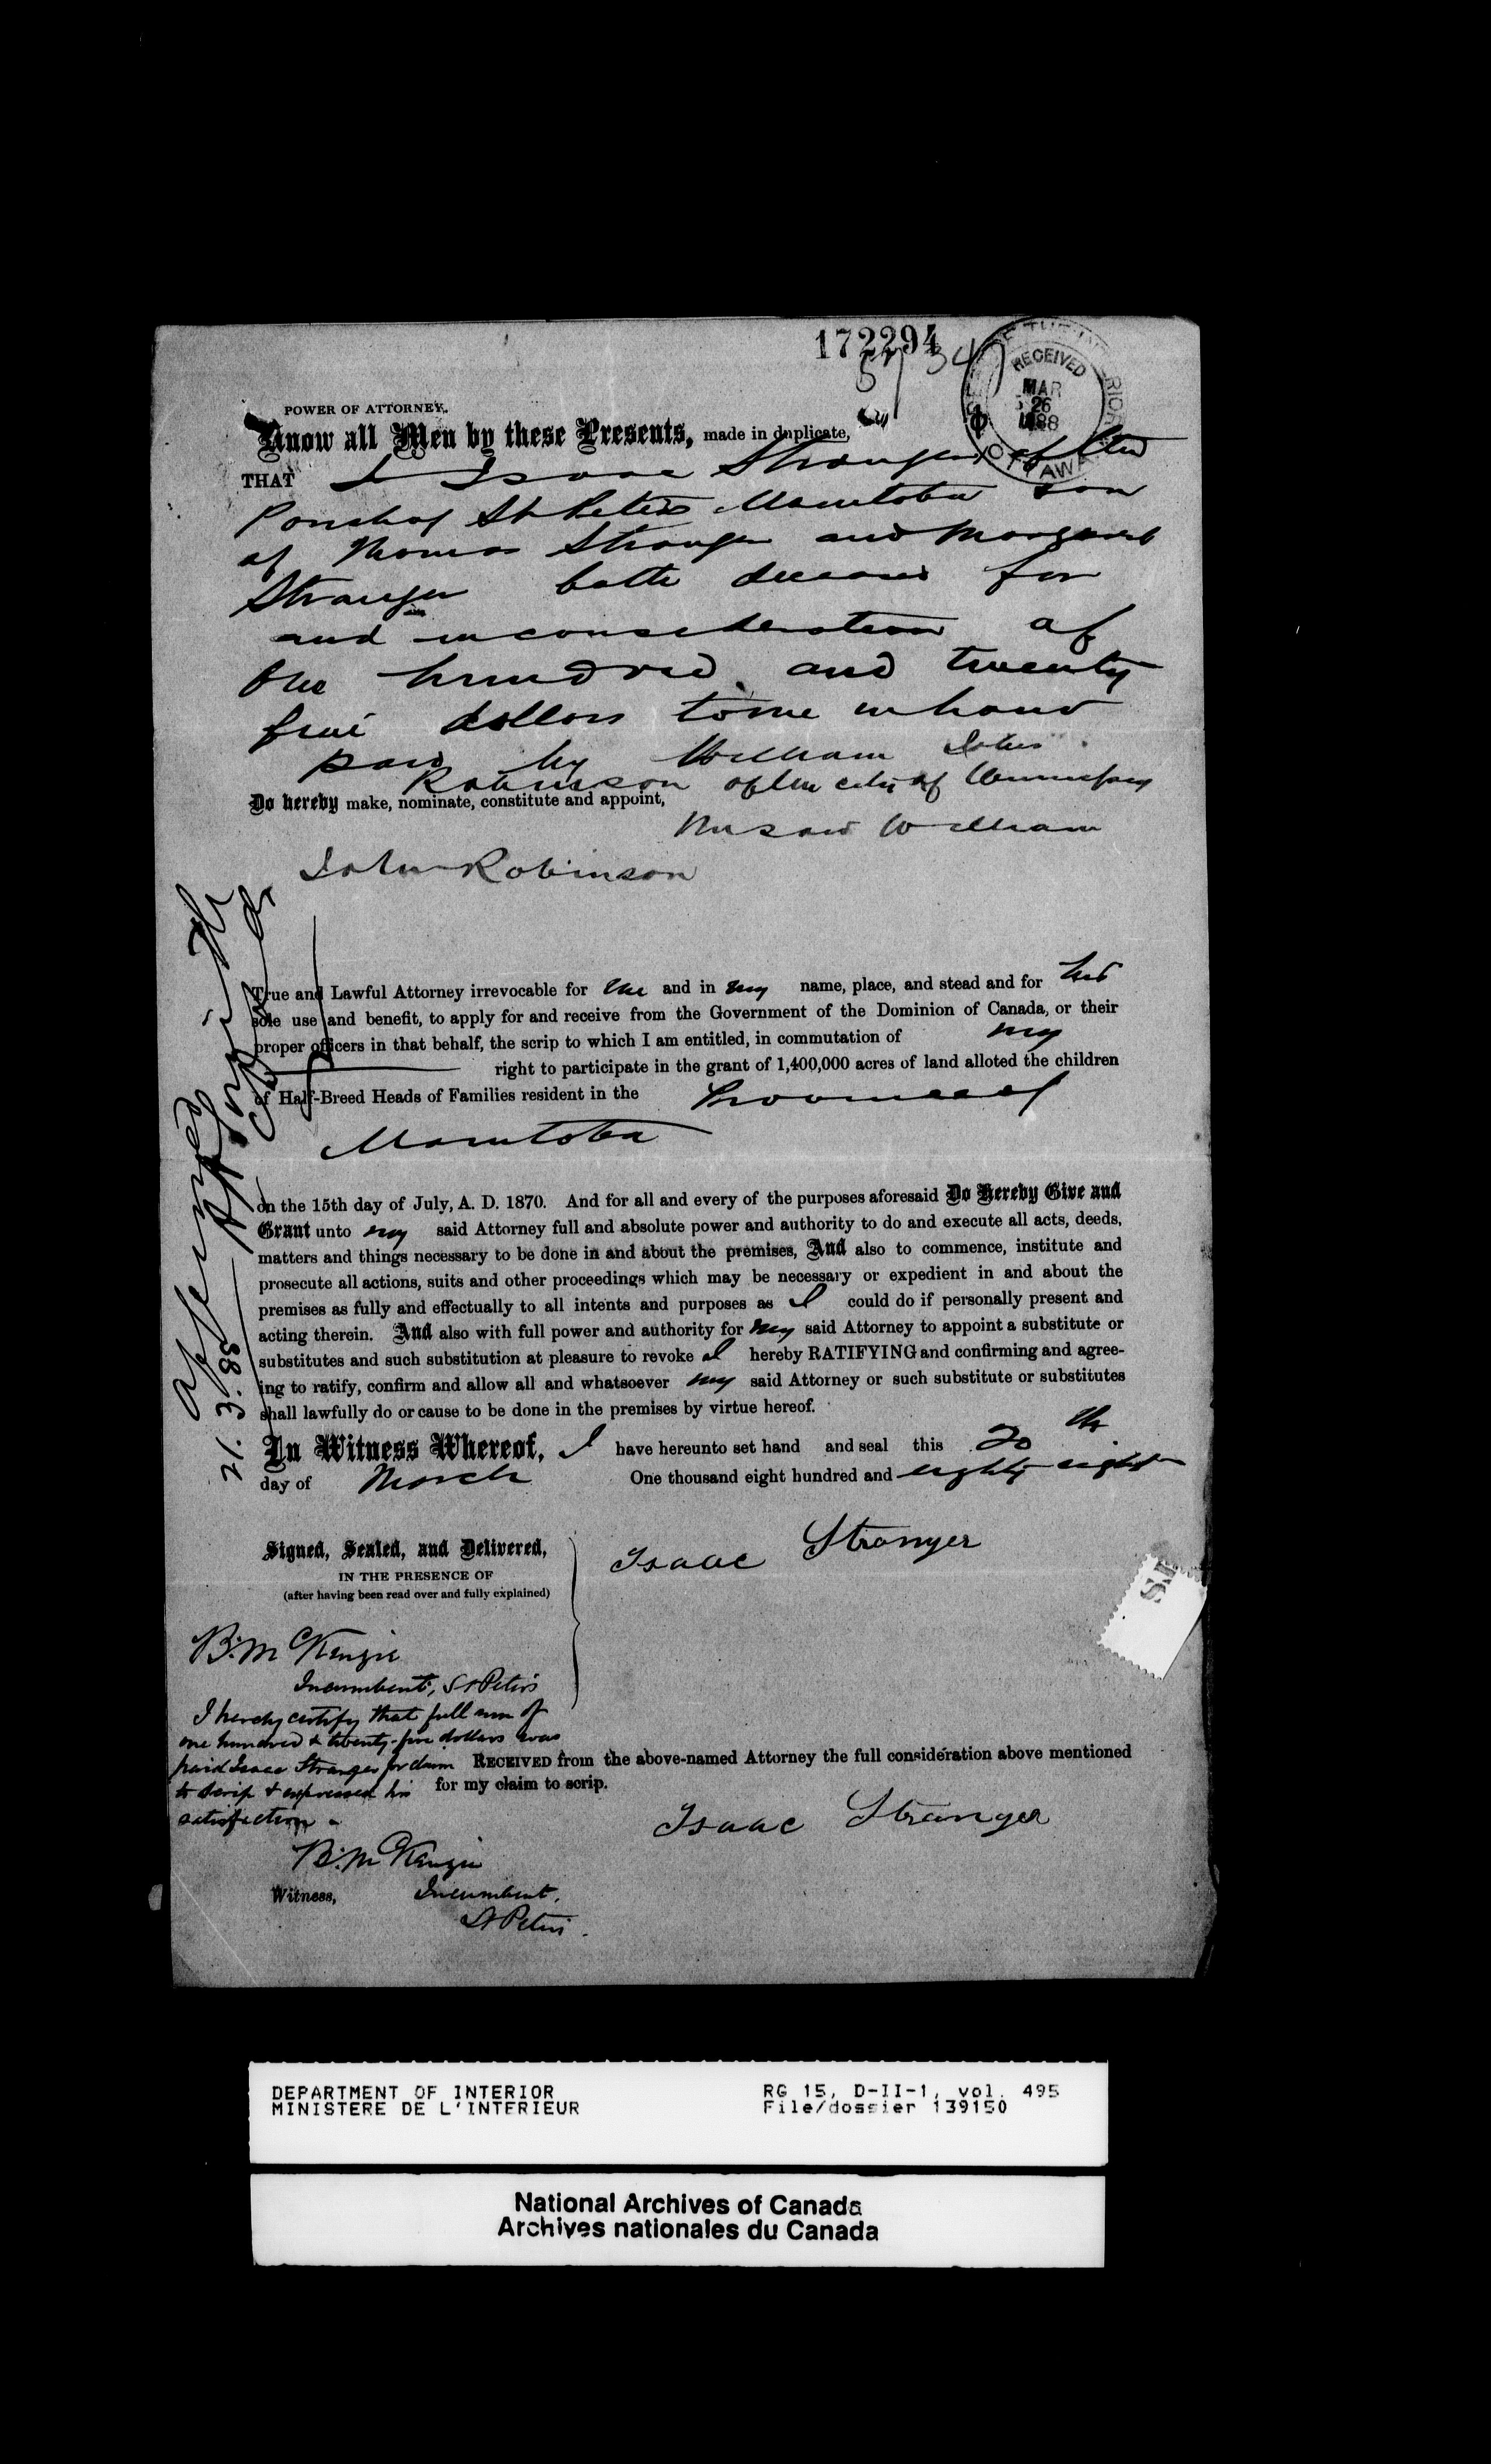 172294
RECEIVED
MAR
26
1888
OTTAWA
POWER OF ATTORNEY.
Know all Men by these Presents, made in duplicate,
THAT I Isaac Stranger of the
Parish of St Peters Manitoba son
of Thomas Stranger and Margaret
Stranger both deceased for
and in consideration of
One hundred and twenty
five dollars to me in hand
paid by William John
Robinson of the city of Winnipeg
Do hereby make, nominate, constitute and appoint,
the said William
John Robinson
True and Lawful Attorney irrevocable for me and in my name, place, and stead and for his
sole use and benefit, to apply for and receive from the Government of the Dominion of Canada, or their
proper officers in that behalf, the scrip to which I am entitled, in commutation of my
right to participate in the grant of 1,400,000 acres of land alloted the children
of Half-Breed Heads of Families resident in the Province of
Manitoba
on the 15th day of July, A. D. 1870. And for all and every of the purposes aforesaid Do Hereby Give and
Grant unto my said Attorney full and absolute power and authority to do and execute all acts, deeds,
matters and things necessary to be done in and about the premises, And also to commence, institute and
prosecute all actions, suits and other proceedings which may be necessary or expedient in and about the
premises as fully and effectually to all intents and purposes as I could do if personally present and
acting therein. And also with full power and authority for my said Attorney to appoint a substitute or
substitutes and such substitution at pleasure to revoke I hereby RATIFYING and confirming and agree-
ing to ratify, confirm and allow all and whatsoever my said Attorney or such substitute or substitutes
shall lawfully do or cause to be done in the premises by virtue hereof.
In Witness Whereof, I have hereunto set hand and seal this 20th
day of March One thousand eight hundred and eighty eight
21.3.88
Signed, Sealed, and Delivered,
IN THE PRESENCE OF
(after having been read over and fully explained)
Isaac Stranger
B. McKenzie
Incumbent, St Peter's
I hereby certify that full sum of
one hundred & twenty-five dollars was
paid Isaac Stranger for claim
to scrip & expressed his
satisfaction
RECEIVED from the above-named Attorney the full consideration above mentioned
for my claim to scrip.
Isaac Stranger
B. McKenzie
Witness, Incumbent,
St Peters.
DEPARTMENT OF INTERIOR RG 15, D-II-1, vol. 495
MINISTERE DE L'INTERIEUR File/dossier 139150
National Archives of Canada
Archives nationales du Canada